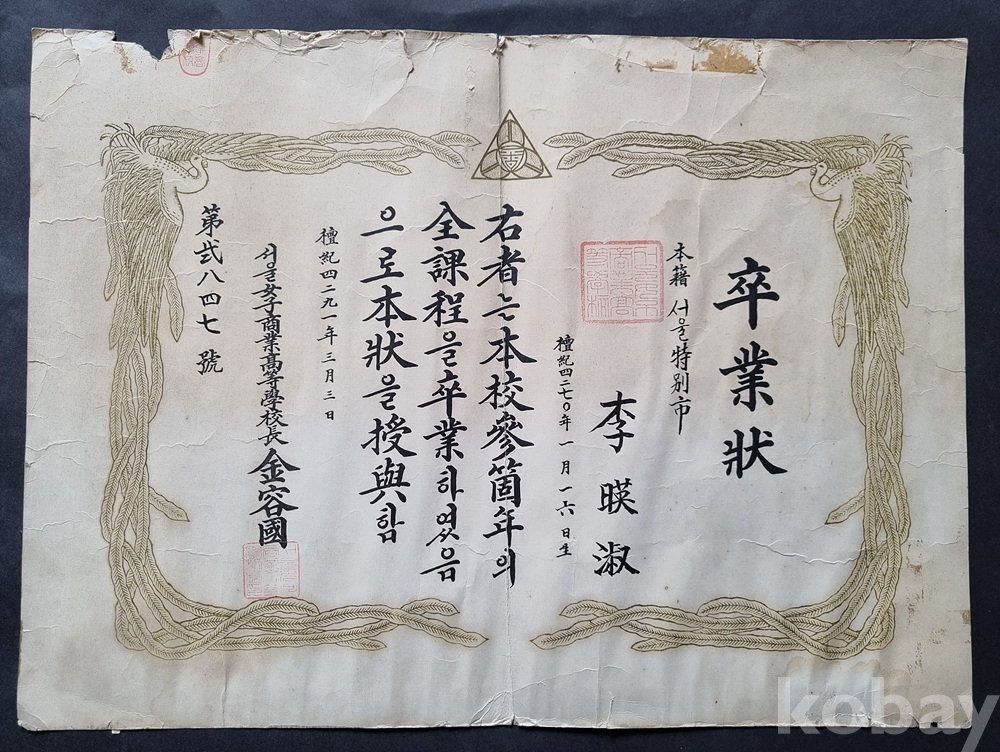 卒業狀
本籍 서울特別市
李暎淑
檀紀四二七〇年一月一六日生
右者는本校參箇年의
全課程을卒業하엿음
으로本狀을授與함
檀紀四二九一年三月三日
서울女子商業高等學校長 金容國
第弐八四七號
kobay